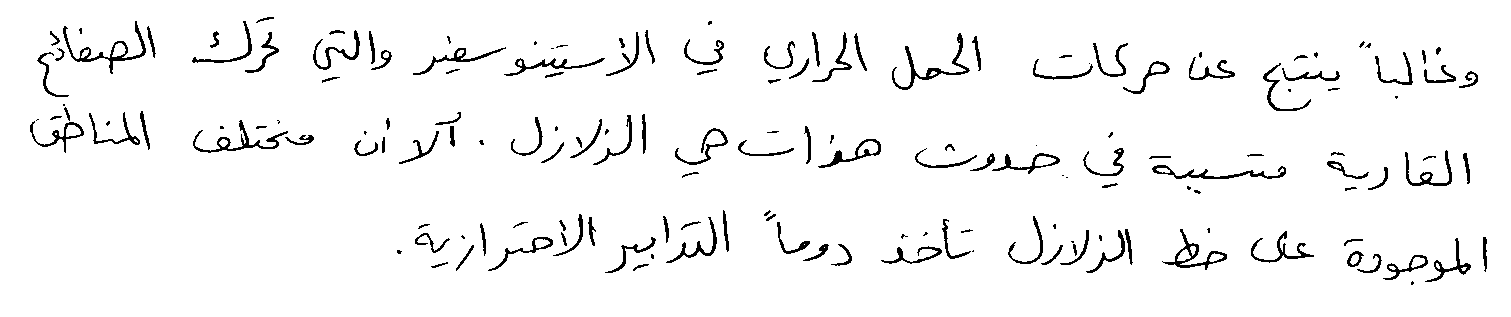 وغالباً ينتج عن حركات الحمل الحراري في الأستينوسفير والتي تحرك الصفائح
القارية متسببة في حدوث هزات هي الزلازل . آلا أن مختلف المناطق
الموجودة على خط الزلازل تأخذ دوماً التدابير الاحترازية.